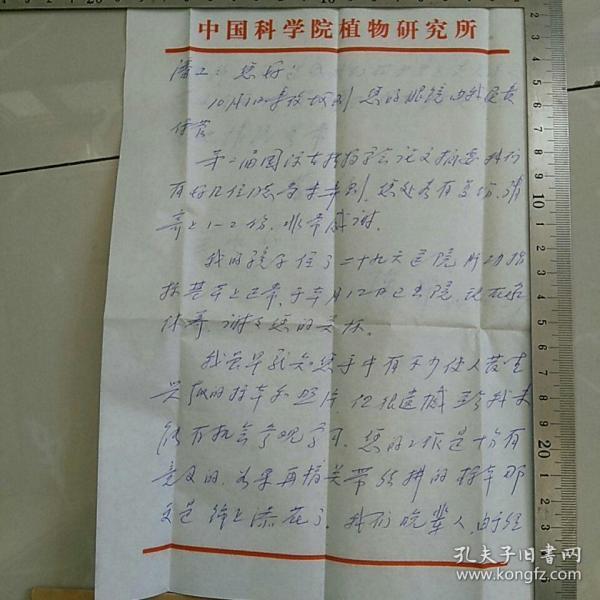 中国科学院植物研究所
潘工 您好
10月1日 您的眼镜由我负责
保管
第二届国际古植物学会论文摘要我们
有好几位同志尚未弄到,您处若有多份,请
寄上1-2份,非常感谢。
我的孩子住了二十九天医院 肝功指
标基本上正常,于本月12日已出院,现在家
休养。谢谢您的关怀。
我曾早就知您手中有不少使人发生
兴趣的标本和照片,但很遗憾至今我未
能有机会参观学习。您的工作是十分有
意义的,如果再有关带 的标本那
更是锦上添花了。我们晚辈人,由于经
孔夫子旧书网
www.kongfz.com